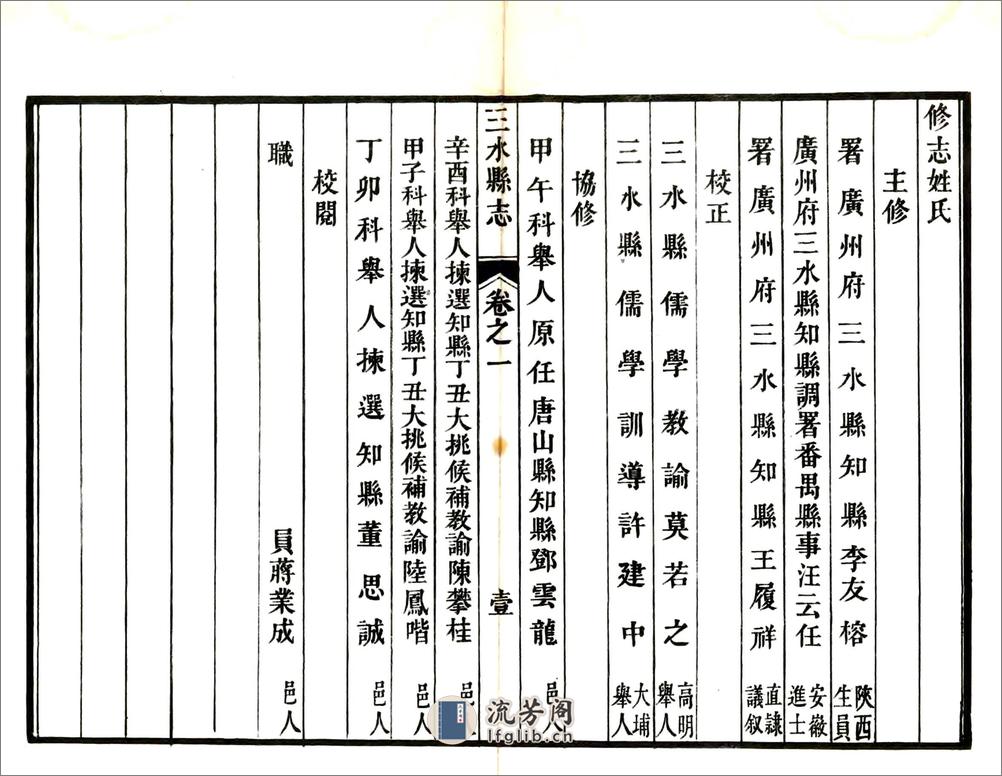 修志姓氏
主修
署廣州府三水縣知縣李友榕 陝西生員
廣州府三水縣知縣調署番禺縣事汪云任 安徽進士
署廣州府三水縣知縣王履祥 直隸議叙
校正
三水縣儒學教諭莫若之 高明舉人
三水縣儒學訓導許建中 大埔舉人
協修
甲午科舉人原任唐山縣知縣鄧雲龍 邑人
三水縣志 卷之一 壹
辛酉科舉人揀選知縣丁丑大挑候補教諭陳攀桂 邑
甲子科舉人揀選知縣丁丑大挑候補教諭陸鳳喈 邑
丁卯科舉人揀選知縣董思誠 邑人
校閱
職員蔣業成 邑人
流芳阁
lfglib.cn